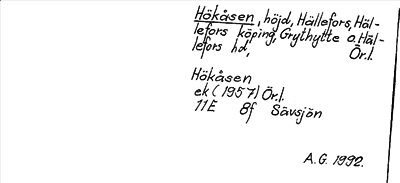 Hökåsen, höjd, Hällefors, Häl-
lefors köping, Grythytte o. Häl-
lefors hd, Ör.l.
Hökåsen
ek (1957) Ör.l.
11E 8f Sävsjön
A.G. 1992.